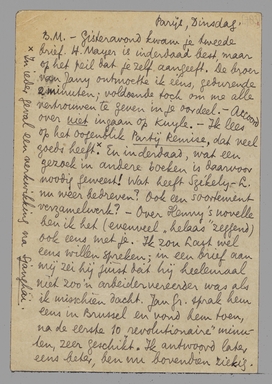 Parijs, Dinsdag.
B.M. – Gisteravond kwam je tweede
brief. H. Mayer is inderdaad best maar
op het peil dat je zelf aangeeft. De broer
van Jany ontmoette ik eens, gedurende
2 minuten; voldoende toch om me alle
vertrouwen te geven in je oordeel. – Accoord
over niet ingaan op Kuyle. – Ik lees
op het oogenblik Partij Remise, dat veel
goeds heeft.× En inderdaad, wat een
gezoek in andere boeken is daarvoor
noodig geweest! Wat heeft Székely-L.
nu weer bedreven? Ook een soortement
verzamelwerk? – Over Henny's novelle
ben ik het (evenveel "helaas" zeggend)
ook eens met je. Ik zou Last wel
eens willen spreken; in een brief aan
mij zei hij juist dat hij heelemaal
niet zoo'n arbeidervereerder was als
ik misschien dacht. Jan Gr. sprak hem
eens in Brussel en vond hem toen,
na de eerste 10 "revolutionaire" minu-
ten, zeer geschikt. Ik antwoord later
eens beter, ben nu bovendien ziekig.
× In ieder geval een verkwikking na